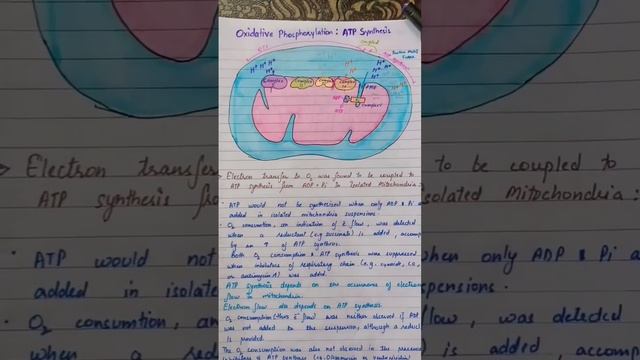 Oxidative Phosphorylation: ATP Synthesis
ETC
coupled
Proton Motive
Force
ATP Synthesis
H+ H+ H+
H+
H+
H+
H+ H+
H+
Complex
Complex
Complex
ADP
ATP
Electron transfer to O₂ was found to be coupled to
ATP synthesis from ADP + Pi in isolated Mitochondria:
· ATP would not be synthesized when only ADP & Pi are
added in isolated mitochondria suspensions.
· O₂ consumtion, an indication of e flow, was detected
when a reductant (e.g succinate) is added, accomp
by an ↑ of ATP synthesis.
· Both O₂ consumption & ATP synthesis were suppressed
when inhibitors of respiratory chain (e.g. cyanide, CO,
or antimycin A) was added.
ATP synthesis depends on the occurrence of electron
flow in mitochondria.
Electron flow also depends on ATP synthesis
O₂ consumption (thus e flow) was neither observed if ADP
was not added to the suspension, although a reduct
is provided.
The O₂ consumption was also not observed in the presence
inhibitors of ATP synthase (e.g. Oligomycin
Electron transfe
ATP synthesis fro
· ATP would not
added in isolate
· O₂ consumtion, an
when a re
to be coupled to
isolated Mitochondria:
when only ADP & Pi a
pensions.
flow, was detected
is added accomp